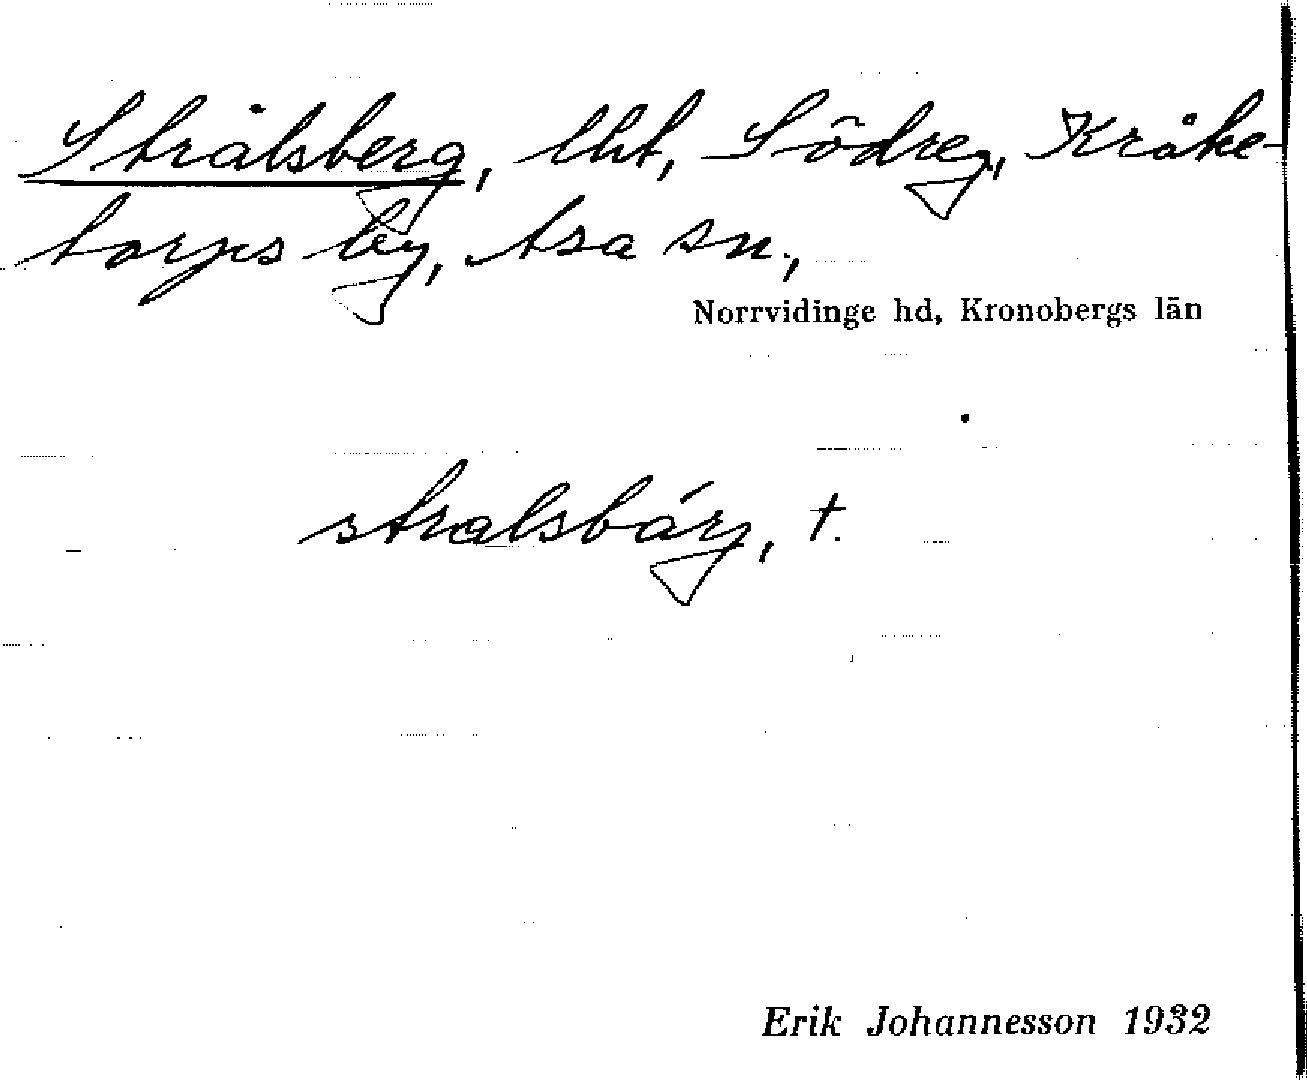 Strålsberg, lht, Södreg., Kråke-
torps by, Asa sn.,
Norrvidinge hd, Kronobergs län
stralsbárj, t.
Erik Johannesson 1932